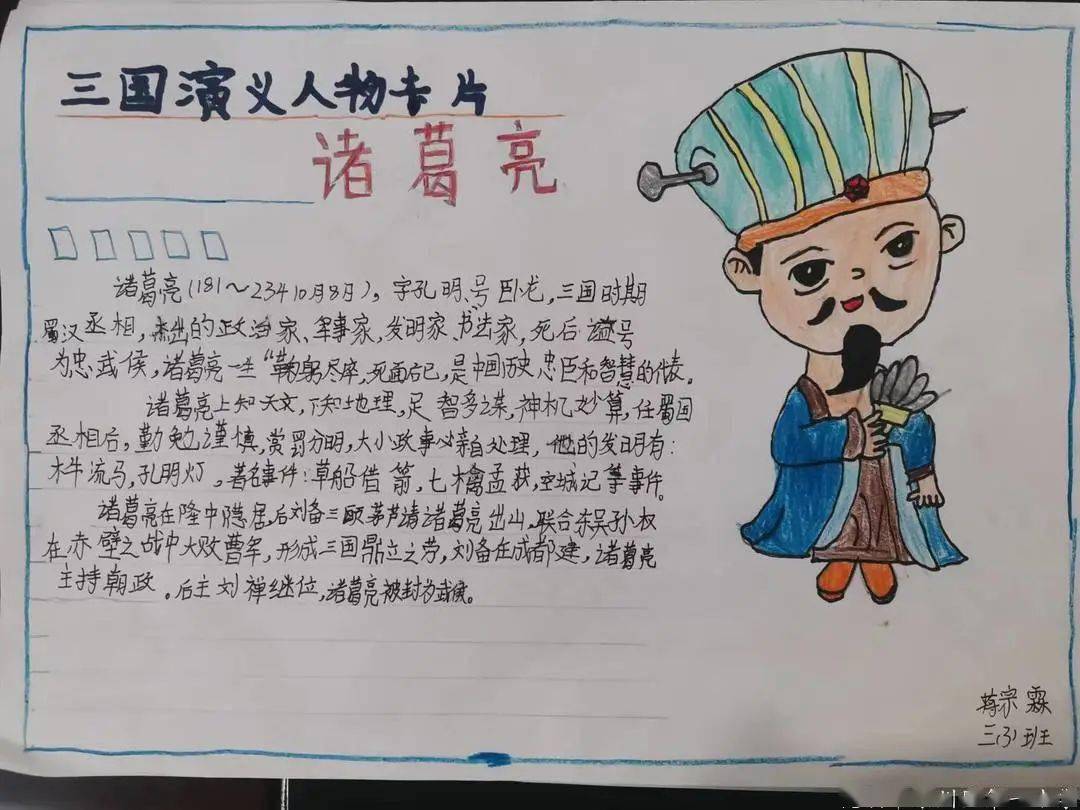 三国演义人物卡片
诸葛亮
诸葛亮(181～23410月8日),字孔明、号卧龙,三国时期
蜀汉丞相,杰出的政治家、军事家、发明家、书法家,死后谥号
为忠武侯,诸葛亮一生“鞠躬尽瘁,死而后已,是中国历史忠臣和智慧的代表。
诸葛亮上知天文,下知地理,足智多谋,神机妙算,任蜀国
丞相后,勤勉谨慎,赏罚分明,大小政事必亲自处理,他的发明有:
木牛流马,孔明灯,著名事件:草船借箭,七擒孟获,空城记等事件。
诸葛亮在隆中隐居,后刘备三顾茅芦请诸葛亮出山,联合东吴孙权
在赤壁之战中大败曹军,形成三国鼎立之势,刘备在成都建,诸葛亮
主持朝政。后主刘禅继位,诸葛亮被封为武侯。
蒋宗霖
三(3)班